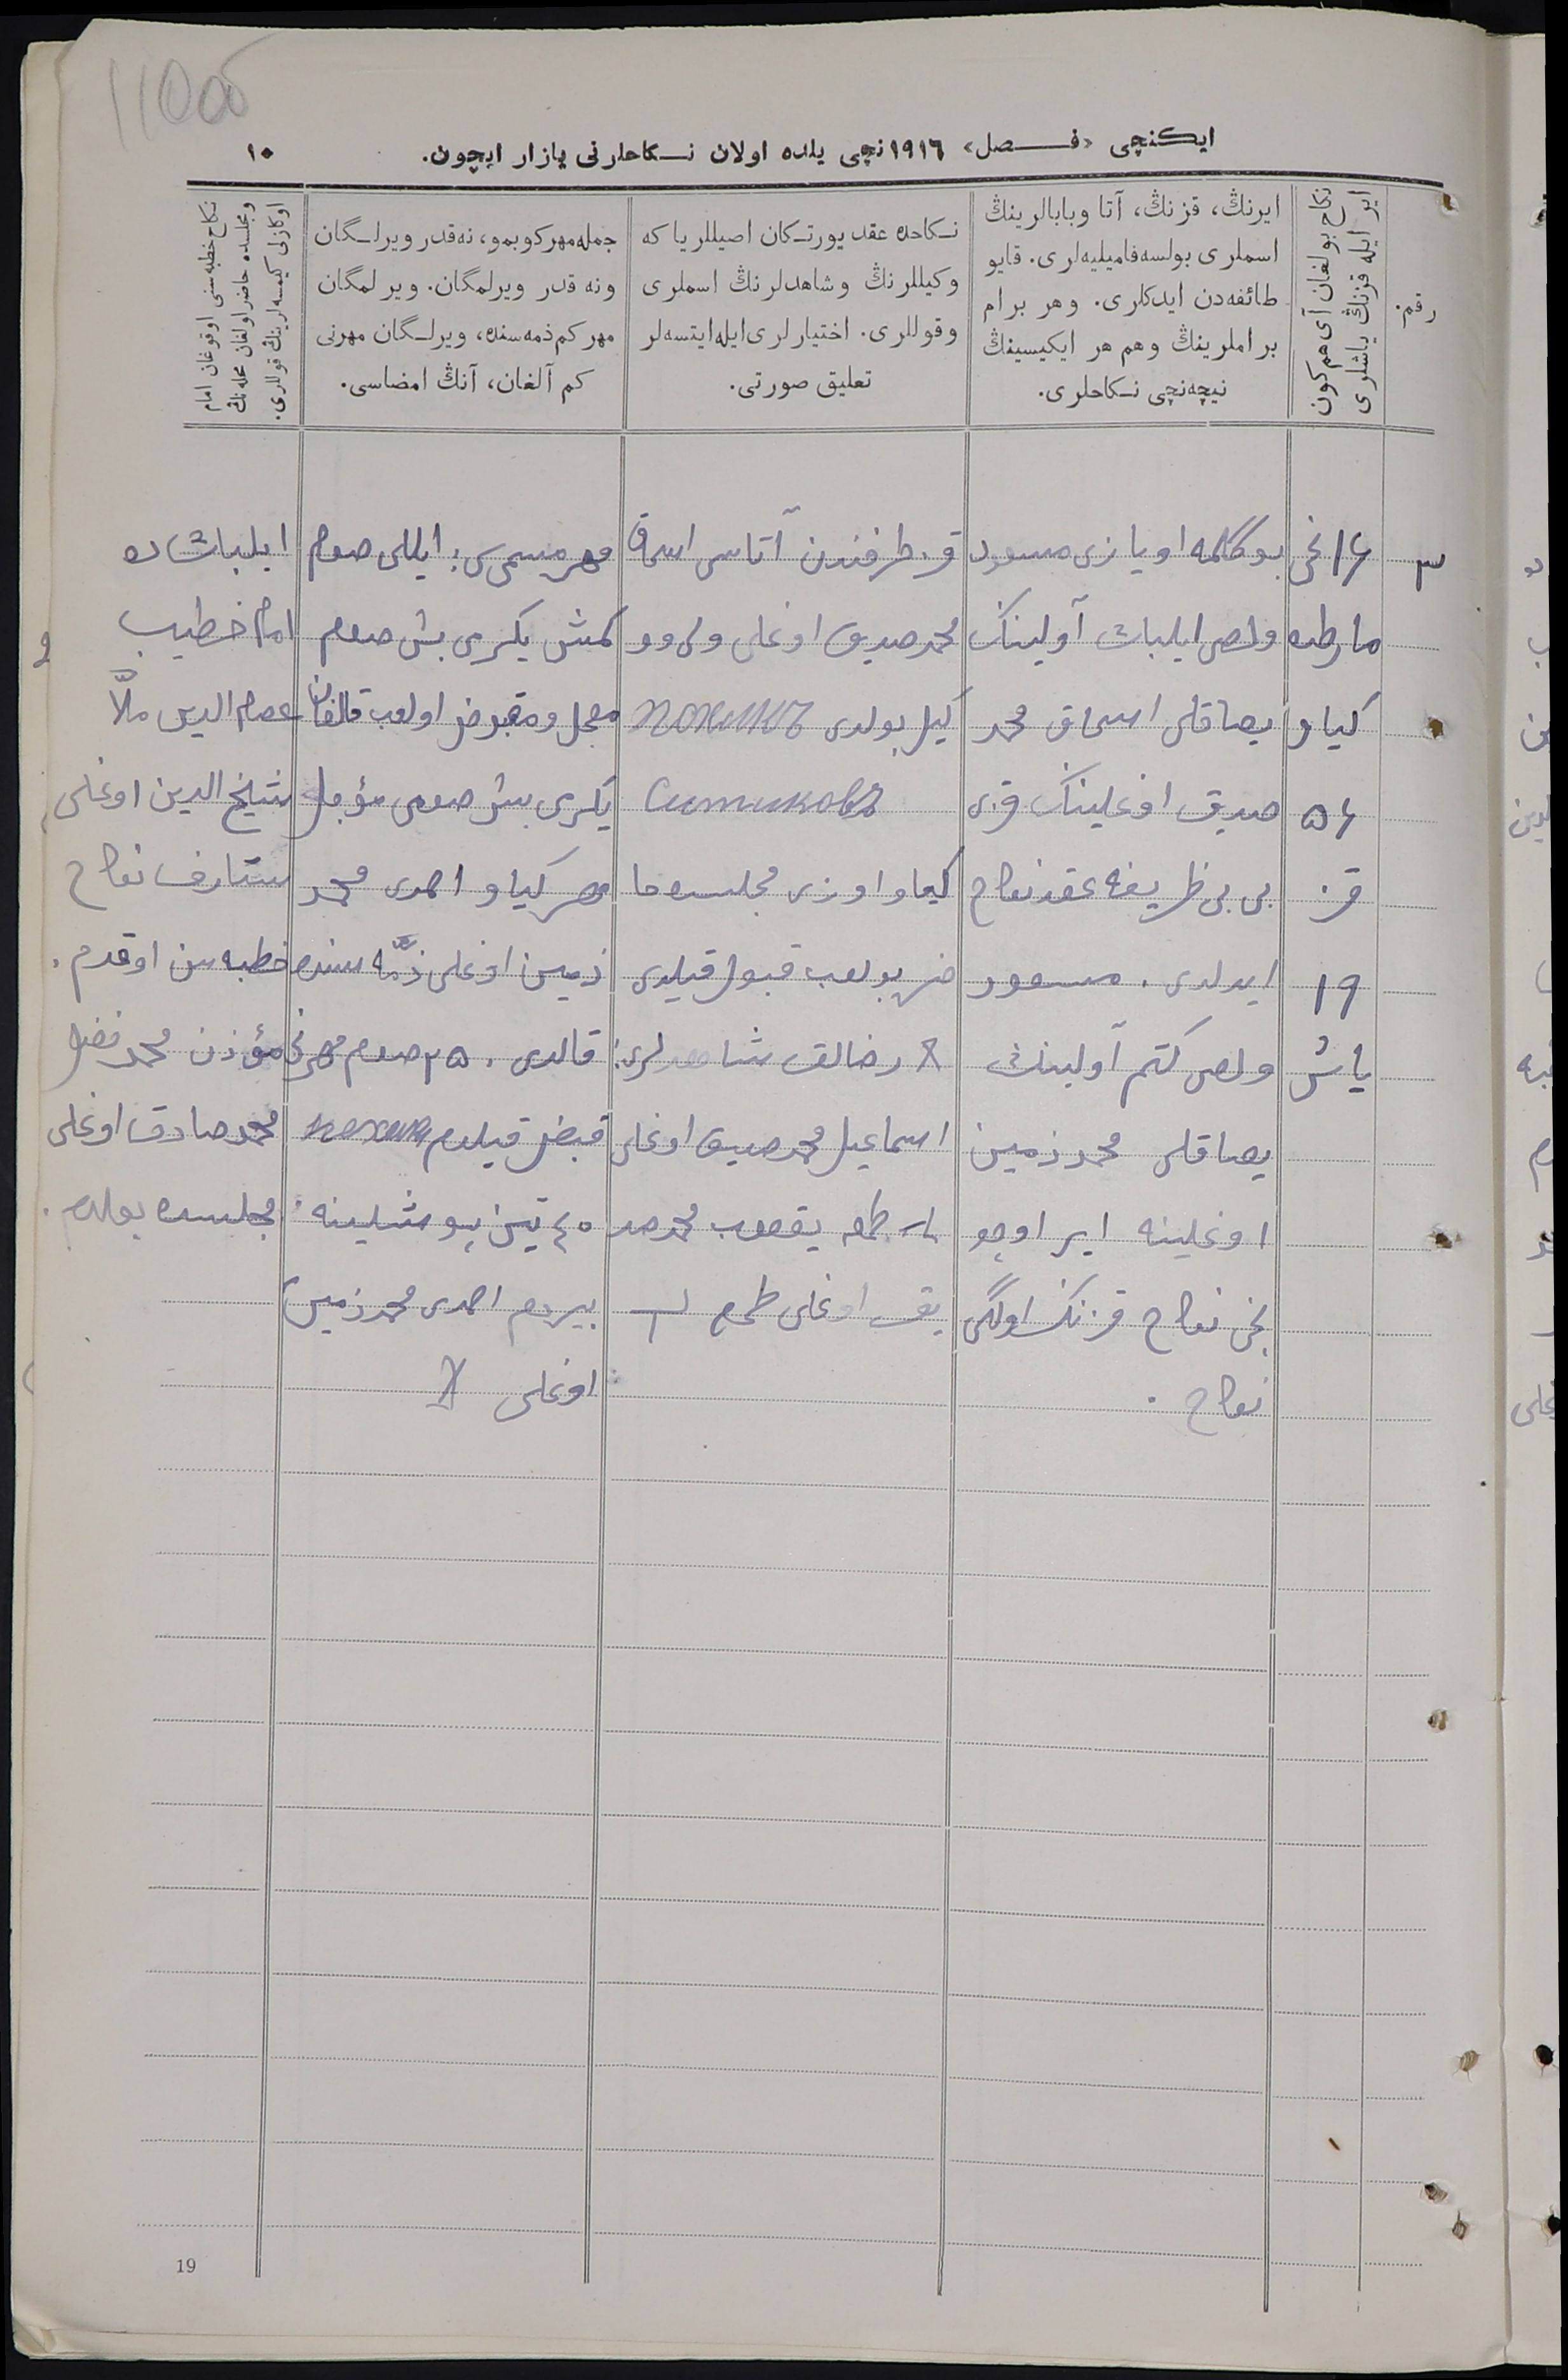 11000
ایكنچی «فصل» ١٩١٦ نچی یلده اولان نكاحلرنی یازار ایچون.
١٠
رقم.
نكاح بولغان آی هم كون
ایر ایله قزنڭ یاشلری
ایرنڭ، قزنڭ، آتا وبابالرینڭ
اسملری بولسه فامیلیه‌لری. قایو
طائفه‌دن ایدكلری. وهر برام
براملرینڭ وهم هر ایكیسینڭ
نیچه‌نچی نكاحلری.
نكاحده عقد یورتكان اصیللر یا كه
وكیللرنڭ وشاهدلرنڭ اسملری
وقوللری. اختیارلری ایله ایتسه‌لر
تعلیق صورتی.
جمله مهر كوبمو، نه قدر ویرلگان
ونه قدر ویرلمگان. ویرلمگان
مهر كم ذمه‌سنده، ویرلگان مهرنی
كم آلغان، آنڭ امضاسی.
نكاح خطبه‌سنی اوقوغان امام
ومجلسده حاضر اولغان محله‌نڭ
اوكازلی كیمسه‌لرینڭ قوللری.
٣
١٦ نچی
مارطده
كیاو
٥٦
قز
١٩
یاش
بوگلمه اویازی مسعود
ولصی ایلبات آولینك
یصاقلی اسحاق محمد
صدیق اوغلینك قزی
بی بی ظریفه عقد نكاح
ایدلدی. مسعود
ولصی كتم آولینڭ
یصاقلی محمد زمین
اوغلینه ایر اوچو
نچی نكاح قزنك اولگی
نكاح.
قز طرفندن آتاسی اسحاق
محمد صدیق اوغلی ولی وو
كیل بولدی
Ситиковъ
كیاو اوزی مجلسده حا
ضر بولوب قبول قیلدی
رضالق شاهدلری:
اسماعیل محمد صدیق اوغلی
یعقوب محمد صد
یق اوغلی طمع
مهر مسمی‌سی: ایللی صوم
كمش یكرمی بش صوم
معجل ومقبوض اولوب قالغان
یكرمی بش صومی مؤجل
مهر كیاو احمدی محمد
زمین اوغلی ذمّه‌سنده
قالدی. ٢٥ صوم مهرنی
قبض قیلدم
٤٠ تین پوشلینه
بیردم احمدی محمد زمین
اوغلی
ایلباتده
امام خطیب
عصام الدین ملّا
شیخ الدین اوغلی
نكاح
خطبه‌سن اوقدم.
مؤذن محمد فضل
محمد صادق اوغلی
مجلسده بولدم.
19